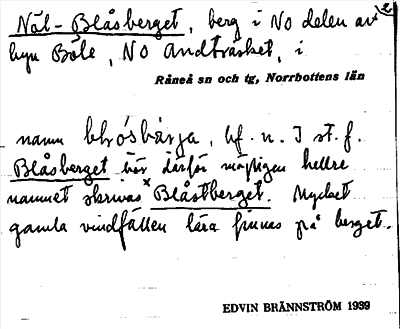 Näl-Blåsberget, berg i NO delen av
byn Böle, NO Andträsket, i
Råneå sn och tg, Norrbottens län
namn
bf. n. I st. f.
Blåsberget bör därför möjligen hellre
namnet skrivas *Blåstberget. Mycket
gamla vindfällen lära finnas på berget.
EDVIN BRÄNNSTRÖM 1939